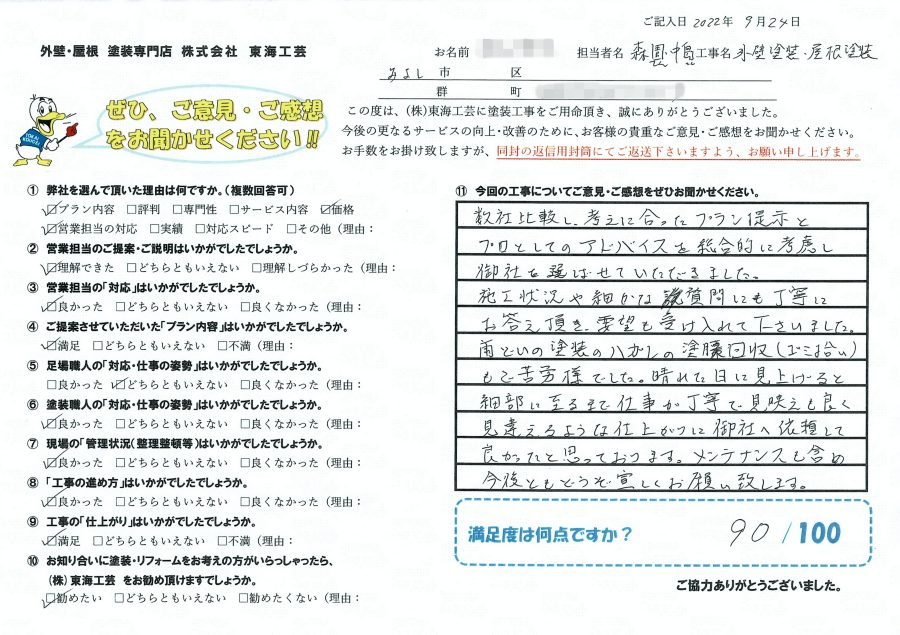 ご記入日 2022年 9月24日
外壁・屋根 塗装専門店 株式会社 東海工芸
お名前
担当者名 工事名 外壁塗装・屋根塗装
みよし 市 区
郡 町
ぜひ、ご意見・ご感想
をお聞かせください!!
この度は、(株)東海工芸に塗装工事をご用命頂き、誠にありがとうございました。
今後の更なるサービスの向上・改善のために、お客様の貴重なご意見・ご感想をお聞かせください。
お手数をお掛け致しますが、同封の返信用封筒にてご返送下さいますよう、お願い申し上げます。
① 弊社を選んで頂いた理由は何ですか。(複数回答可)
☑プラン内容 □評判 □専門性 □サービス内容 ☑価格
☑営業担当の対応 □実績 □対応スピード □その他(理由:
② 営業担当のご提案・ご説明はいかがでしたでしょうか。
☑理解できた □どちらともいえない □理解しづらかった(理由:
③ 営業担当の「対応」はいかがでしたでしょうか。
☑良かった □どちらともいえない □良くなかった(理由:
④ ご提案させていただいた「プラン内容」はいかがでしたでしょうか。
☑満足 □どちらともいえない □不満(理由:
⑤ 足場職人の「対応・仕事の姿勢」はいかがでしたでしょうか。
□良かった ☑どちらともいえない □良くなかった(理由:
⑥ 塗装職人の「対応・仕事の姿勢」はいかがでしたでしょうか。
☑良かった □どちらともいえない □良くなかった(理由:
⑦ 現場の「管理状況(整理整頓等)はいかがでしたでしょうか。
☑良かった □どちらともいえない □良くなかった(理由:
⑧ 「工事の進め方」はいかがでしたでしょうか。
☑良かった □どちらともいえない □良くなかった(理由:
⑨ 工事の「仕上がり」はいかがでしたでしょうか。
☑満足 □どちらともいえない □不満(理由:
⑩ お知り合いに塗装・リフォームをお考えの方がいらっしゃったら、
(株)東海工芸 をお勧め頂けますでしょうか。
☑勧めたい □どちらともいえない □勧めたくない(理由:
⑪ 今回の工事についてご意見・ご感想をぜひお聞かせください。
数社比較し、考えに合ったプラン提示と
プロとしてのアドバイスを総合的に考慮し
御社を選ばせていただきました。
施工状況や細かな質問にも丁寧に
お答え頂き、要望も受け入れて下さいました。
雨といの塗装のハガレの塗膜回収(ゴミ拾い)
もご苦労様でした。晴れた日に見上げると
細部に至るまで仕事が丁寧で見映えも良く
見違えるような仕上がりに御社へ依頼して
良かったと思っております。メンテナンスも含め
今後ともどうぞ宜しくお願い致します。
満足度は何点ですか? 90/100
ご協力ありがとうございました。